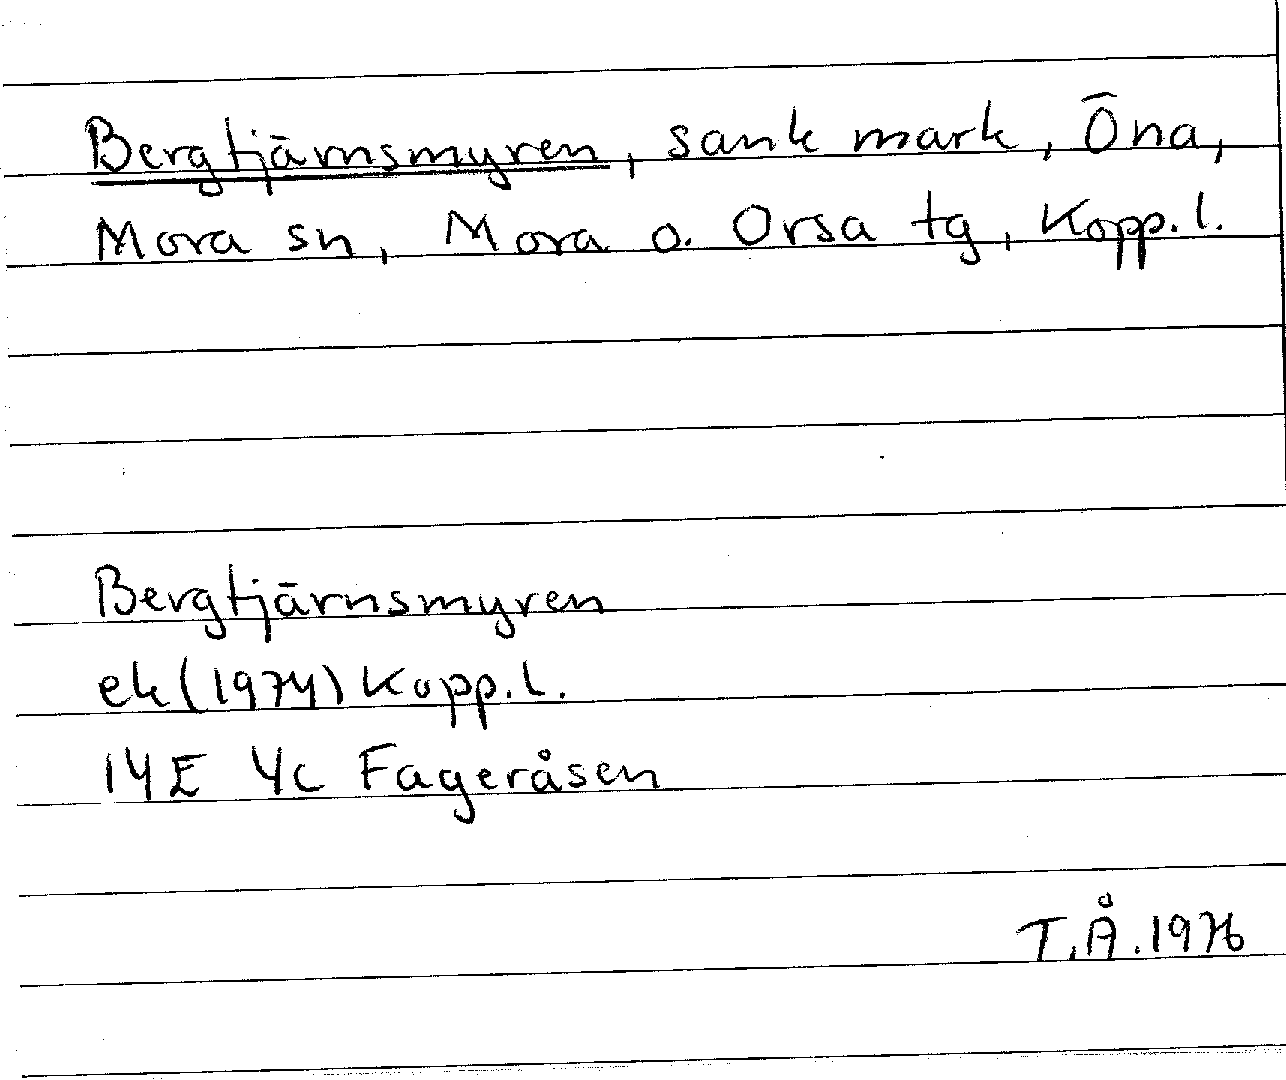 Bergtjärnsmyren, sank mark, Öna,
Mora sn, Mora o. Orsa tg, Kopp.l.
Bergtjärnsmyren
ek (1974) Kopp.l.
14E 4c Fageråsen
T.Å. 1976